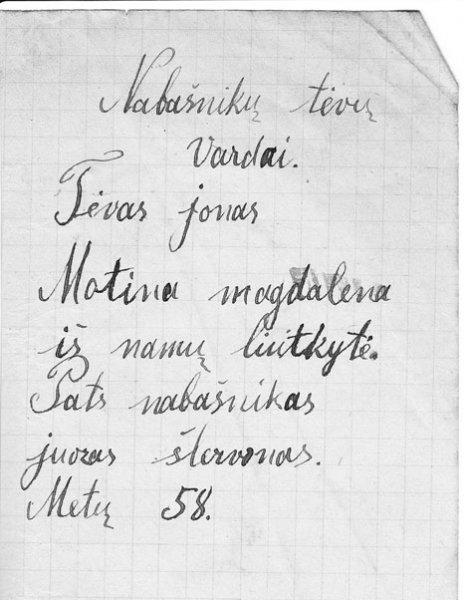 Nabašnikų tėvų
Vardai.
Tėvas jonas
Motina magdalena
iš namų liutkytė.
Pats nabašnikas
juozas štervonas.
Metų 58.